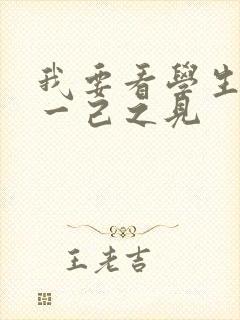 我要看學生
一己之見
王老吉